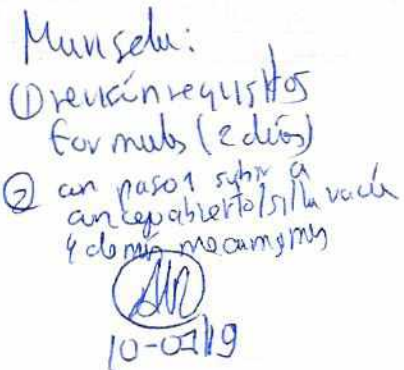 Munselu:
① revisión requisitos
formales (2 días)
② con paso 1 subir a
concejo abierto/silla vacía
y demás mecanismos
10-07/19